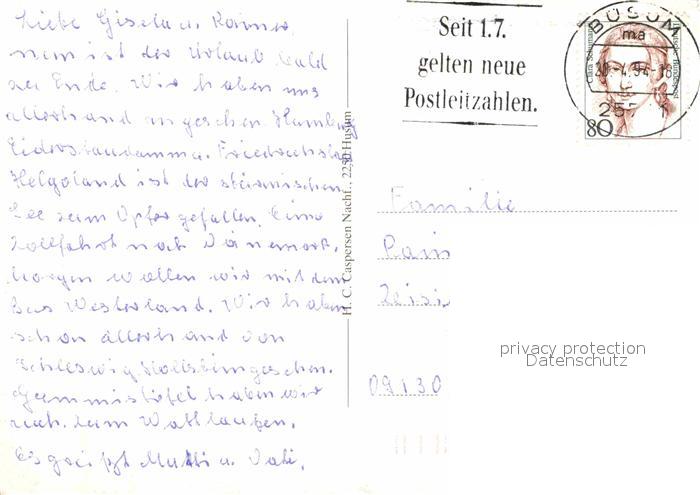 Liebe Gisela u. Rainer,
nun ist der Urlaub bald
zu Ende. Wir haben uns
allerhand angesehen. Hamburg
Eiderstaudamm u. Friedrichstadt
Helgoland ist der stürmischen
See zum Opfer gefallen. Eine
Zollfahrt nach Dänemark.
Morgen wollen wir mit dem
Bus Westerland. Wir haben
schon allerhand von
Schleswig Holstein gesehen.
Gummistiefel haben wir
auch zum Wattlaufen.
Es grüßt Mutti u. Vati.
H. C. Caspersen Nachf., 2250 Husum
Seit 1.7.
gelten neue
Postleitzahlen.
BÜSUM
ma
-4.94-18
257
Clara Schumann
Deutsche Bundespost
80
Familie
09130
privacy protection
Datenschutz